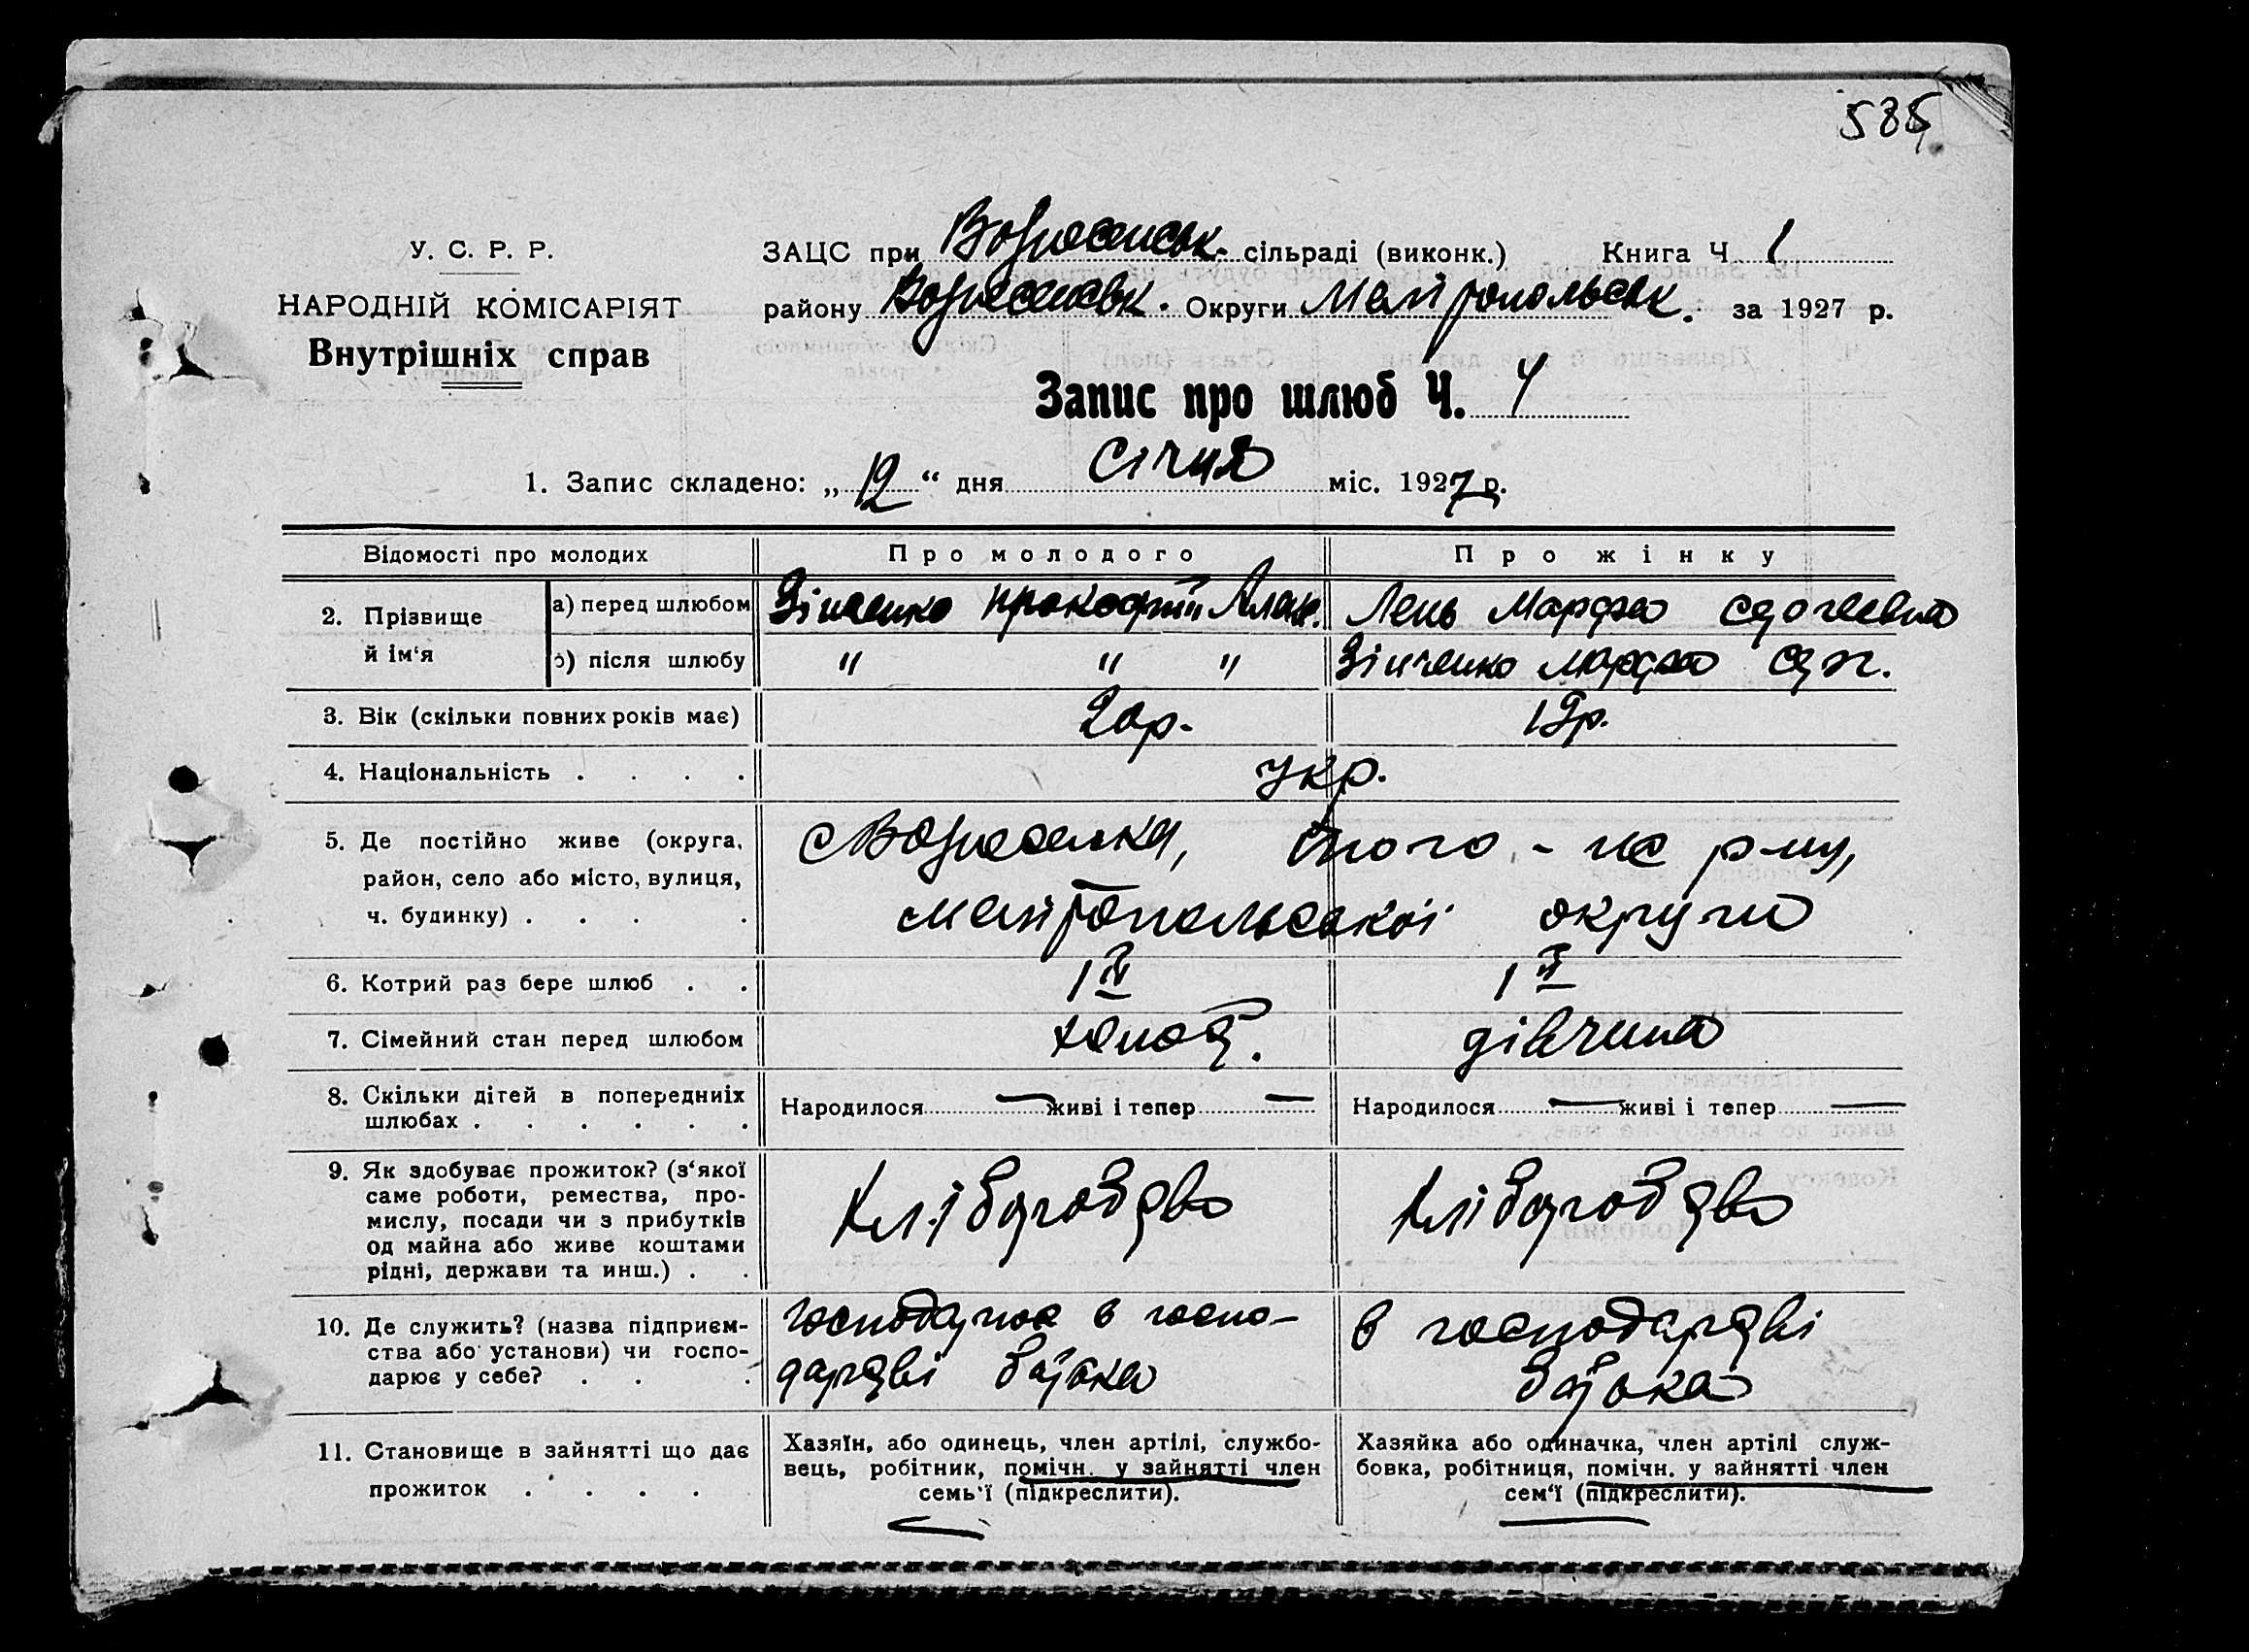 585
У. С. Р. Р.
НАРОДНІЙ КОМІСАРІЯТ
Внутрішніх справ
ЗАЦС при Вознесенськ. сільраді (виконк.) Книга Ч. 1
району Вознесенськ. Округи Мелітопольськ. за 1927 р.
Запис про шлюб Ч. 4
1. Запис складено: „12“ дня Січня міс. 1927 р.
Відомості про молодих
Про молодого
Про жінку
2. Прізвище й ім‘я
а) перед шлюбом
Зінченко Прокофій
Лень Марфа
б) після шлюбу
" " "
Зінченко Марфа
3. Вік (скільки повних років має)
20р.
19р.
4. Національність . . . .
укр.
5. Де постійно живе (округа,
район, село або місто, вулиця,
ч. будинку) . . . .
с Вознесенка, того - же р-ну,
мелітопольської округи
6. Котрий раз бере шлюб . .
1й
1й
7. Сімейний стан перед шлюбом
холост.
дівчина
8. Скільки дітей в попередніх
шлюбах . . . . . .
Народилося — живі і тепер —
Народилося — живі і тепер —
9. Як здобуває прожиток? (з‘якої
саме роботи, ремества, про-
мислу, посади чи з прибутків
од майна або живе коштами
рідні, держави та инш.) . .
Хліборобство
Хліборобство
10. Де служить? (назва підприєм-
ства або установи) чи госпо-
дарює у себе? . . .
господарює в госпо-
дарстві батька
в господарстві
батька
11. Становище в зайнятті що дає
прожиток . . . .
Хазяїн, або одинець, член артілі, службо-
вець, робітник, помічн. у зайнятті член
семь‘ї (підкреслити).
Хазяйка або одиначка, член артілі служ-
бовка, робітниця, помічн. у зайнятті член
сем‘ї (підкреслити).